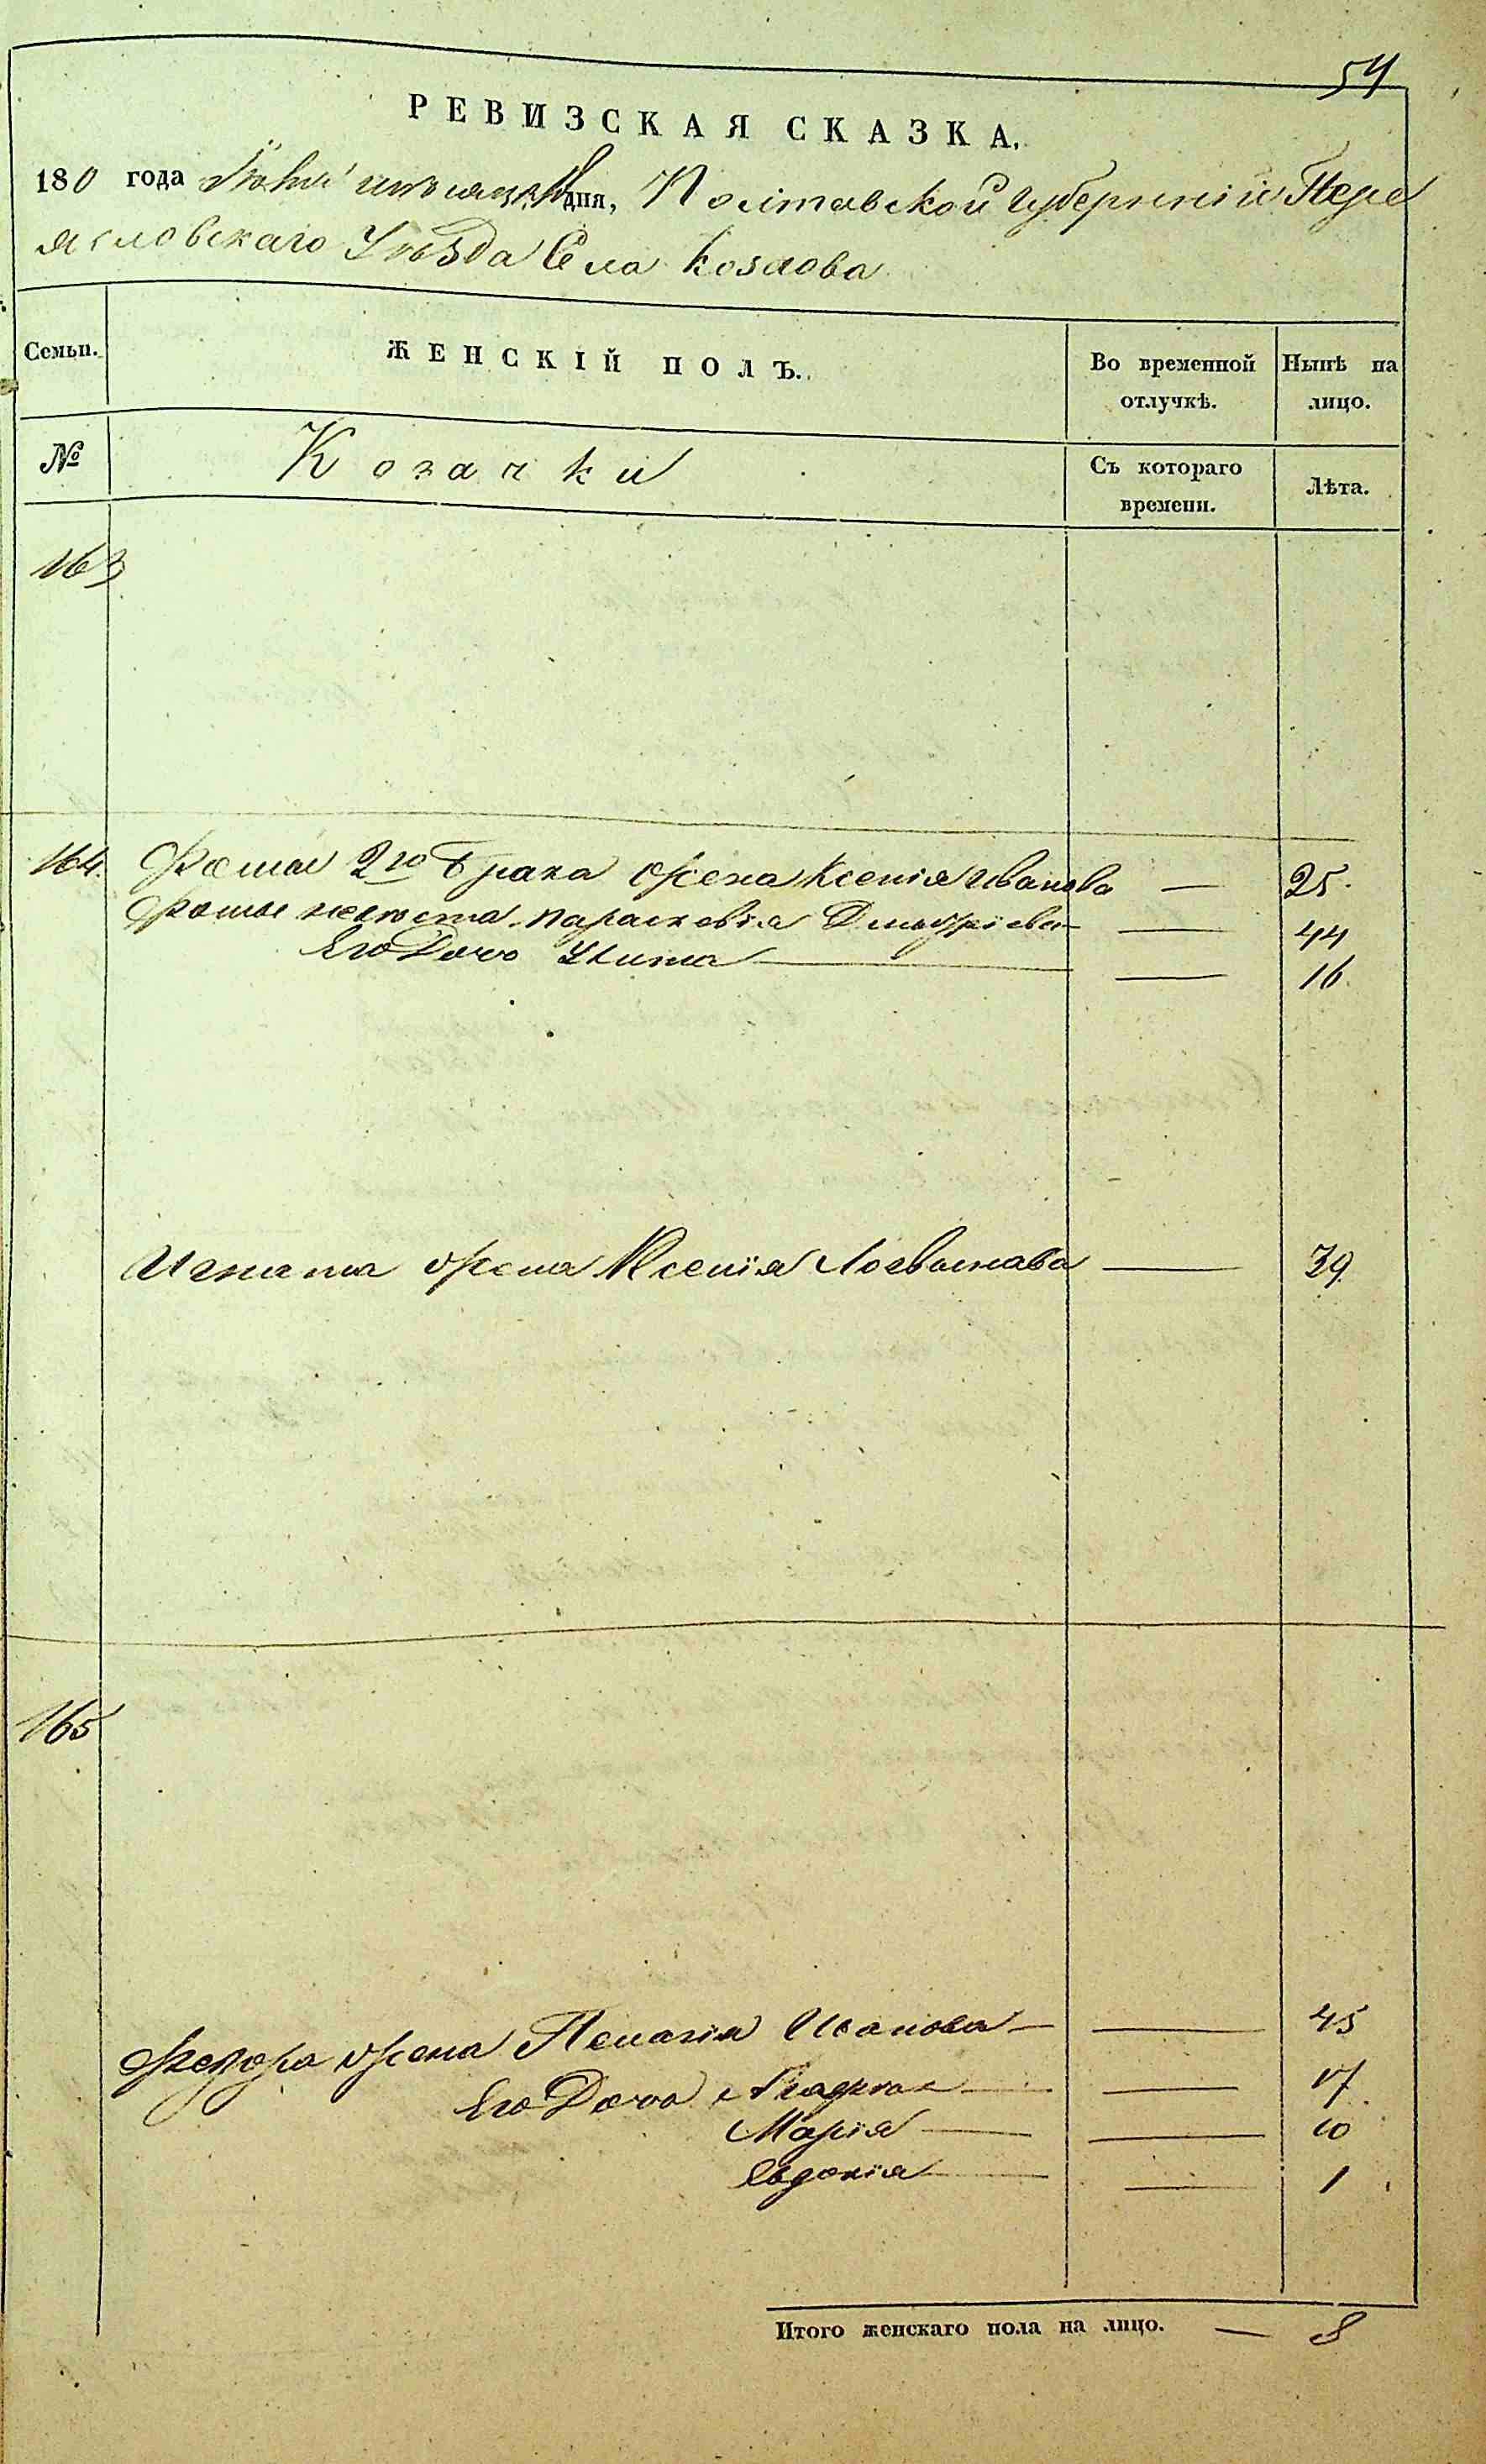 54
РЕВИЗСКАЯ СКАЗКА.
1850 года Іюня мѣсяца дня, Полтавской Губерніи Пере
ясловскаго Уѣзда Села Козлова
Семьи.
ЖЕНСКІЙ ПОЛЪ.
Во временной отлучкѣ.
Нынѣ на лицо.
№
Козачки
Съ котораго времени.
Лѣта.
163
164. Фомы 2го брака жена Ксенія Иванова — 25.
Фомы невѣста Параскевія Дмытріева — 44
Его Дочь Улита — 16.
Игната жена Ксенія Логвынава — 39
165
Федора жена Пелагія Исакова — 45
Его Дочь — 17
Марія — 10
Евдокія — 1
Итого женскаго пола на лицо. — 8